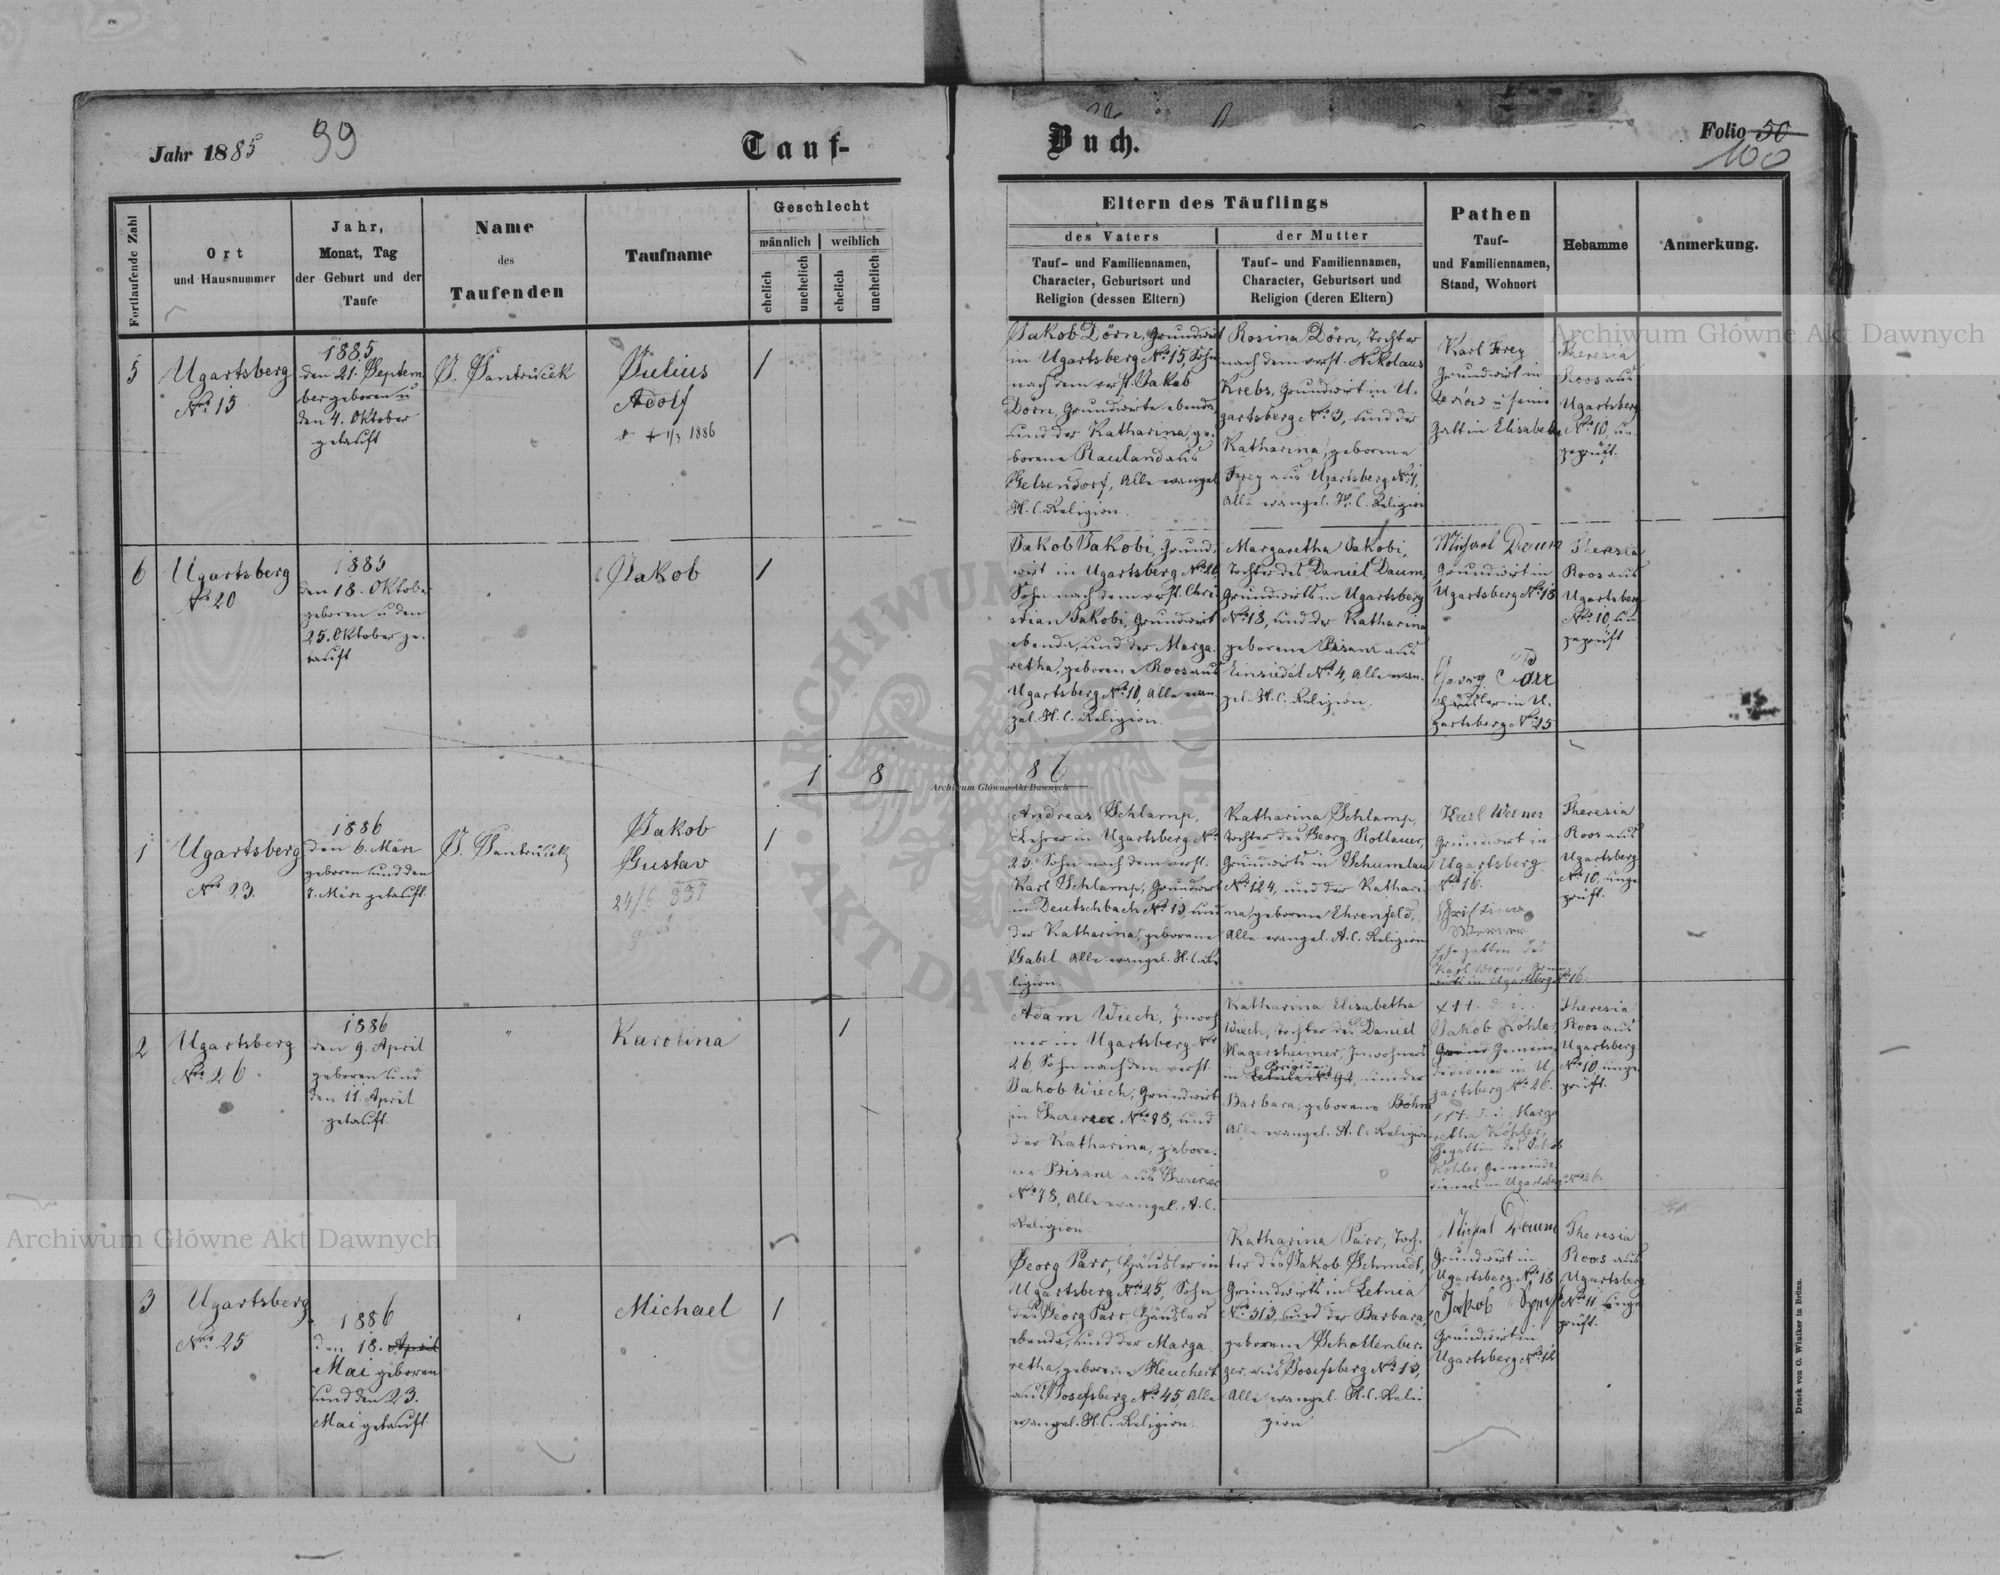 Jahr 1885
99
Tauf-
Buch.
Folio 50
100
Fortlaufende Zahl
Ort
und Hausnummer
Jahr,
Monat, Tag
der Geburt und der
Taufe
Name
des
Taufenden
Taufname
Geschlecht
männlich
weiblich
ehelich
unehelich
ehelich
unehelich
Eltern des Täuflings
des Vaters
Tauf- und Familiennamen,
Character, Geburtsort und
Religion (dessen Eltern)
der Mutter
Tauf- und Familiennamen,
Character, Geburtsort und
Religion (deren Eltern)
Pathen
Tauf-
und Familiennamen,
Stand, Wohnort
Hebamme
Anmerkung.
5
Ugartsberg
Nro 15
1885
den 21. Septem
ber geboren u
den 4. Oktober
getauft
J. Jantrucek
Julius
Adolf
+ 1/3 1886
1
Jakob Dörn, Grundwirt
in Ugartsberg No 15, Sohn
nach dem verst. Jakob
Dörn, Grundwirts ebenda,
und der Katharina, ge-
borene Rauland aus
Gelsendorf, Alle evangel.
H. C. Religion.
Rosina Dörn, Tochter
nach dem verst. Nikolaus
Krebs, Grundwirt in U-
gartsberg No 3, und der
Katharina, geborene
Frey aus Ugartsberg
Alle evangel. H. C. Religion
Karl Frey
Grundwirt in
u seine
Gattin Elisabeth
Theresia
Roos aus
Ugartsberg
No 10, un-
geprüft.
6
Ugartsberg
No 20
1885
den 18. Oktober
geboren u den
25. Oktober ge-
tauft
Jakob
1
Jakob Jakobi, Grund-
wirt in Ugartsberg No 20,
Sohn nach dem verst. Chri-
stian Jakobi, Grundwirt
ebenda, und der Marga-
retha, geborene Roos aus
Ugartsberg No 10, Alle evan-
gel. H. C. Religion.
Margaretha Jakobi,
Tochter des Daniel Daum,
Grundwirts in Ugartsberg
No 18, und der Katharina
geborene Bisanz aus
Einsiedel No 4, Alle evan-
gel. H. C. Religion.
Michael Daum
Grundwirt in
Ugartsberg No 18
Georg Parr
Häusler in U-
gartsberg No 25
Theresia
Roos aus
Ugartsberg
No 10, un
geprüft
1 8
8 6
1
Ugartsberg
No 23.
1886
den 6. März
geboren und den
7. März getauft.
J. Jantrucek
Jakob
Gustav
24/6 937
1
Andreas Schlamp,
Lehrer in Ugartsberg No
23, Sohn nach dem verst.
Karl Schlamp, Grundwirt
in Deutschbach No 13, und
der Katharina, geborene
Gabel Alle evangel. H. C. Re
ligion.
Katharina Schlamp,
Tochter des Georg Rollauer,
Grundwirts in Schumlau
No 124, und der Kathari-
na, geborene Ehrenfeld,
Alle evangel. A. C. Religion
Karl Werner
Grundwirt in
Ugartsberg
No 16.
Christina
Werner
Ehegattin des
Karl Werner, Grund
wirts in Ugartsberg No 16.
Theresia
Roos aus
Ugartsberg
No 10, unge-
prüft.
2
Ugartsberg
No 26
1886
den 9. April
geboren und
den 11. April
getauft.
"
Karolina
1
Adam Wiech, Inwoh
ner in Ugartsberg No
26, Sohn nach dem verst.
Jakob Wiech, Grundwirt
in No 78, und
der Katharina, gebore-
ne Bisanz aus
No 78, Alle evangel. A. C.
Religion.
Katharina Elisabetha
Wiech, Tochter des Daniel
Hagersheimer, Inwohners
in Brigidau No 92, und der
Barbara, geborene Böhm
Alle evangel. A. C. Religion
+++ d. i.
Jakob Köhler
Gemein
diener in U-
gartsberg No 26.
+++ d. i. Marga
retha Köhler,
Ehegattin des Jakob
Köhler, Gemeinde-
dieners in Ugartsberg No 26.
Theresia
Roos aus
Ugartsberg
No 10 unge-
prüft.
3
Ugartsberg
No 25
1886
den 18. April
Mai geboren
und den 23.
Mai getauft.
"
Michael
1
Georg Parr, Häusler in
Ugartsberg No 25, Sohn
des Georg Parr, Häuslers
ebenda, und der Marga-
retha, geborene Heuchert
aus Josefsberg No 45, Alle
evangel. H. C. Religion.
Katharina Parr, Toch-
ter des Jakob Schmidt,
Grundwirts in Letnia
No 313, und der Barbara,
geborene Schollenber-
ger, aus Josefsberg No 13,
Alle evangel. H. C. Reli
gion
Michael Daum
Grundwirt in
Ugartsberg No 18
Jakob
Grundwirt in
Ugartsberg No 12
Theresia
Roos aus
Ugartsberg
No 11, unge
prüft.
Druck von G. Winiker in Brünn.
Archiwum Główne Akt Dawnych
Archiwum Główne Akt Dawnych
Archiwum Główne Akt Dawnych